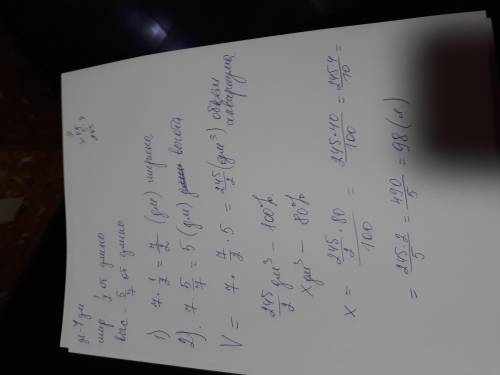 дл - 7 дм
шир 1/2 от длины
выс - 5/7 от длины
49
× 5
245
1) 7 · 1/2 = 7/2 (дм) ширина
2) 7 · 5/7 = 5 (дм) высота
V = 7 · 7/2 · 5 = 245/2 (дм³) объём аквариума
245/2 дм³ — 100%
x дм³ — 80%
x = (245/2 · 80)/100 = 245·40/100 = 245·4/10 =
= 245·2/5 = 490/5 = 98 (л)